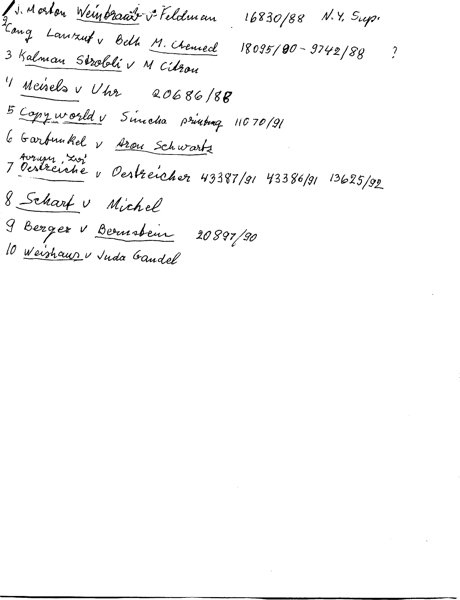 1 J. Morton Weinbraub v Feldman 16830/88 N.Y. Sup.
2 Cong Lanzut v Beth M. Chemed 18095/90-9742/88 ?
3 Kalman Strobli v M Citron
4 Meisels v Uhr 20686/88
5 Copy world v Simcha printing 11070/91
6 Garfunkel v Aron Schwartz
Avrum Zvi
7 Oestreiche v Oestreicher 43387/91 43386/91 13625/92
8 Scharf v Michel
9 Berger v Bernstein 20897/90
10 Weishaus v Juda Gandel